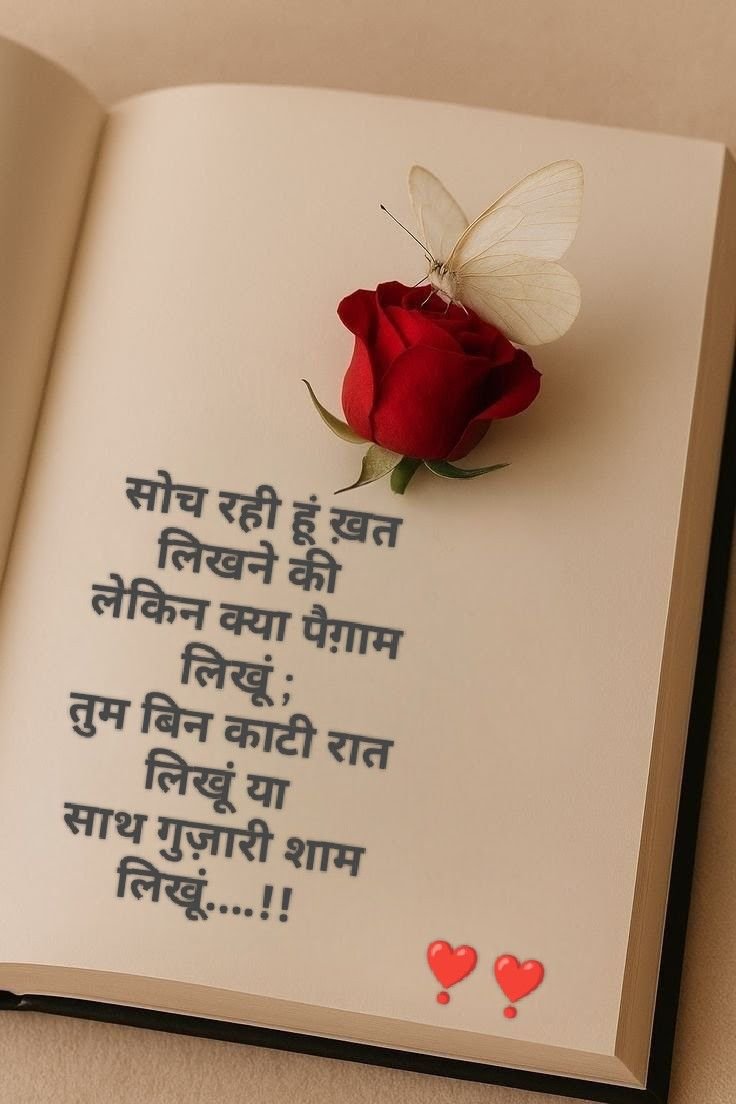 सोच रही हूं ख़त
लिखने की
लेकिन क्या पैग़ाम
लिखूं ;
तुम बिन काटी रात
लिखूं या
साथ गुज़ारी शाम
लिखूं....!!